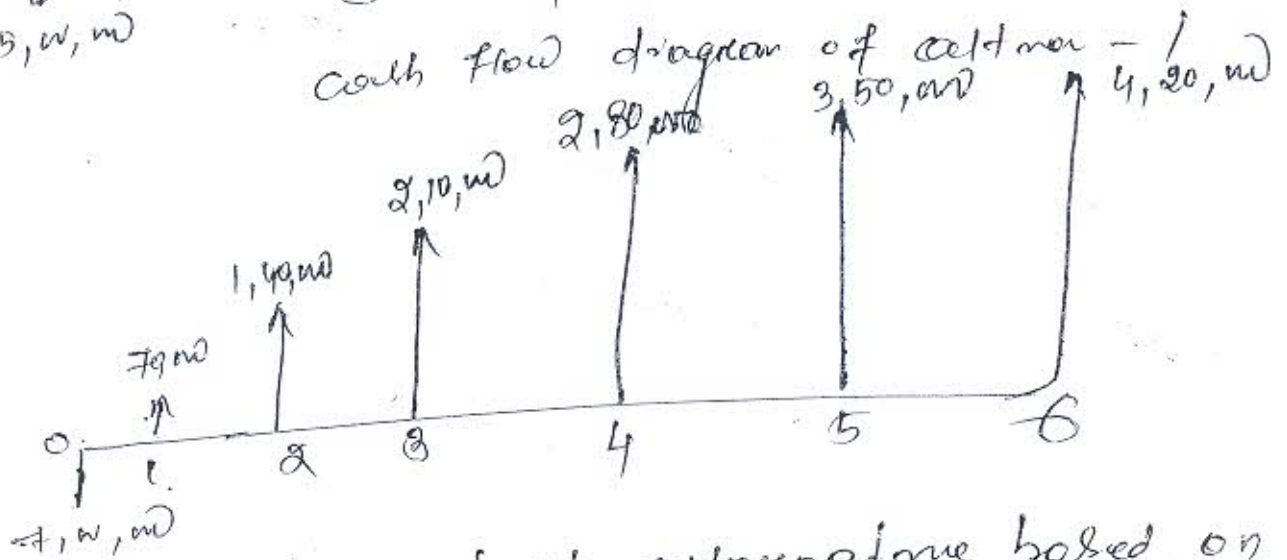 cash flow diagram of alternative - 1
4,20,000
3,50,000
2,80,000
2,10,000
1,40,000
70,000
0
1
2
3
4
5
6
7,00,000
based on